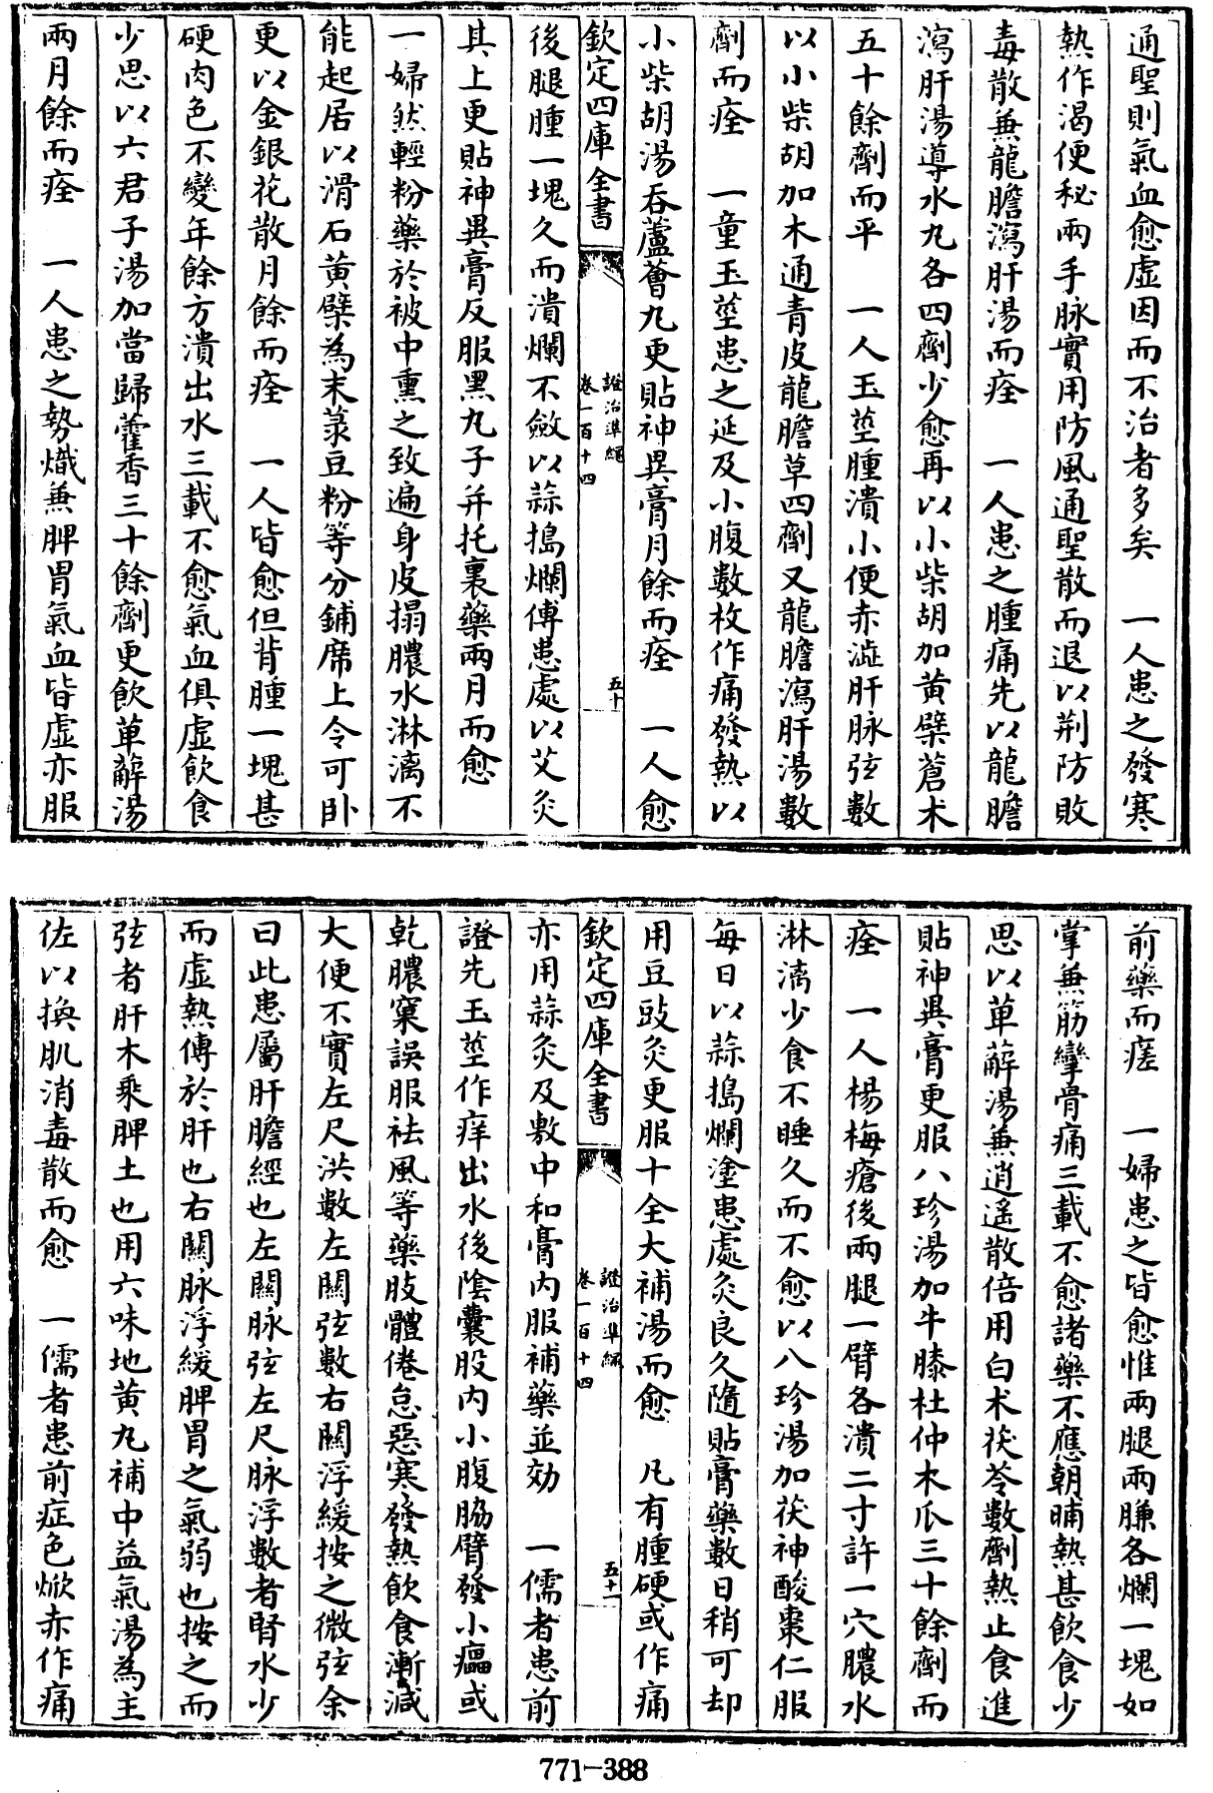 通聖則氣血愈虛因而不治者多矣　一人患之發寒
熱作渴便秘兩手脉實用防風通聖散而退以荆防敗
毒散兼龍膽瀉肝湯而痊　一人患之腫痛先以龍膽
瀉肝湯導水丸各四劑少愈再以小柴胡加黄檗蒼术
五十餘劑而平　一人玉莖腫潰小便赤澁肝脉弦數
以小柴胡加木通青皮龍膽草四劑又龍膽瀉肝湯數
劑而痊　一童玉莖患之延及小腹數枚作痛發熱以
小柴胡湯吞蘆薈丸更貼神異膏月餘而痊　一人愈
欽定四庫全書
證治準繩
卷一百十四
五十
後腿腫一塊久而潰爛不斂以蒜搗爛傅患處以艾灸
其上更貼神異膏反服黑丸子并托裏藥兩月而愈
一婦然輕粉藥於被中熏之致遍身皮搨膿水淋漓不
能起居以滑石黄檗為末菉豆粉等分鋪席上令可卧
更以金銀花散月餘而痊　一人皆愈但背腫一塊甚
硬肉色不變年餘方潰出水三載不愈氣血俱虛飲食
少思以六君子湯加當歸藿香三十餘劑更飲萆薢湯
兩月餘而痊　一人患之勢熾兼脾胃氣血皆虛亦服
前藥而瘥　一婦患之皆愈惟兩腿兩臁各爛一塊如
掌兼筋攣骨痛三載不愈諸藥不應朝晡熱甚飲食少
思以萆薢湯兼逍遥散倍用白术茯苓數劑熱止食進
貼神異膏更服八珍湯加牛膝杜仲木瓜三十餘劑而
痊　一人楊梅瘡後兩腿一臂各潰二寸許一穴膿水
淋漓少食不睡久而不愈以八珍湯加茯神酸棗仁服
每日以蒜搗爛塗患處灸良久隨貼膏藥數日稍可却
用豆豉灸更服十全大補湯而愈　凡有腫硬或作痛
欽定四庫全書
證治準繩
卷一百十四
五十一
亦用蒜灸及敷中和膏内服補藥並効　一儒者患前
證先玉莖作痒出水後陰囊股内小腹脇臂發小瘟或
乾膿窠誤服祛風等藥肢體倦怠惡寒發熱飲食漸減
大便不實左尺洪數左關弦數右關浮緩按之微弦余
曰此患屬肝膽經也左關脉弦左尺脉浮數者腎水少
而虛熱傳於肝也右關脉浮緩脾胃之氣弱也按之而
弦者肝木乘脾土也用六味地黄丸補中益氣湯為主
佐以換肌消毒散而愈　一儒者患前症色焮赤作痛
771-388